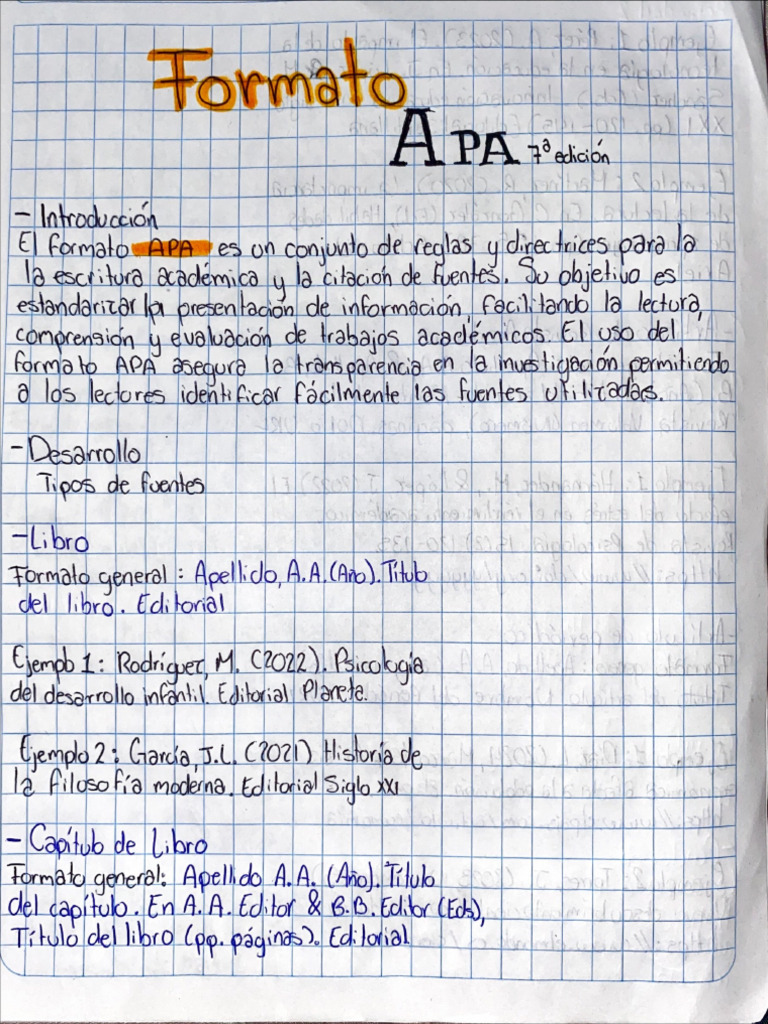 Formato
APA 7ª edición
- Introducción
El formato APA es un conjunto de reglas y directrices para la
la escritura académica y la citación de fuentes. Su objetivo es
estandarizar la presentación de información, facilitando la lectura,
comprensión y evaluación de trabajos académicos. El uso del
formato APA asegura la transparencia en la investigación permitiendo
a los lectores identificar fácilmente las fuentes utilizadas.
- Desarrollo
Tipos de fuentes
- Libro
Formato general: Apellido, A.A. (Año). Título
del libro. Editorial
Ejemplo 1: Rodríguez, M. (2022). Psicología
del desarrollo infantil. Editorial Planeta.
Ejemplo 2: García, J.L. (2021) Historia de
la filosofía moderna. Editorial Siglo XXI
- Capítulo de Libro
Formato general: Apellido A.A. (Año). Título
del capítulo. En A.A. Editor & B.B. Editor (Eds),
Título del libro (pp. páginas). Editorial